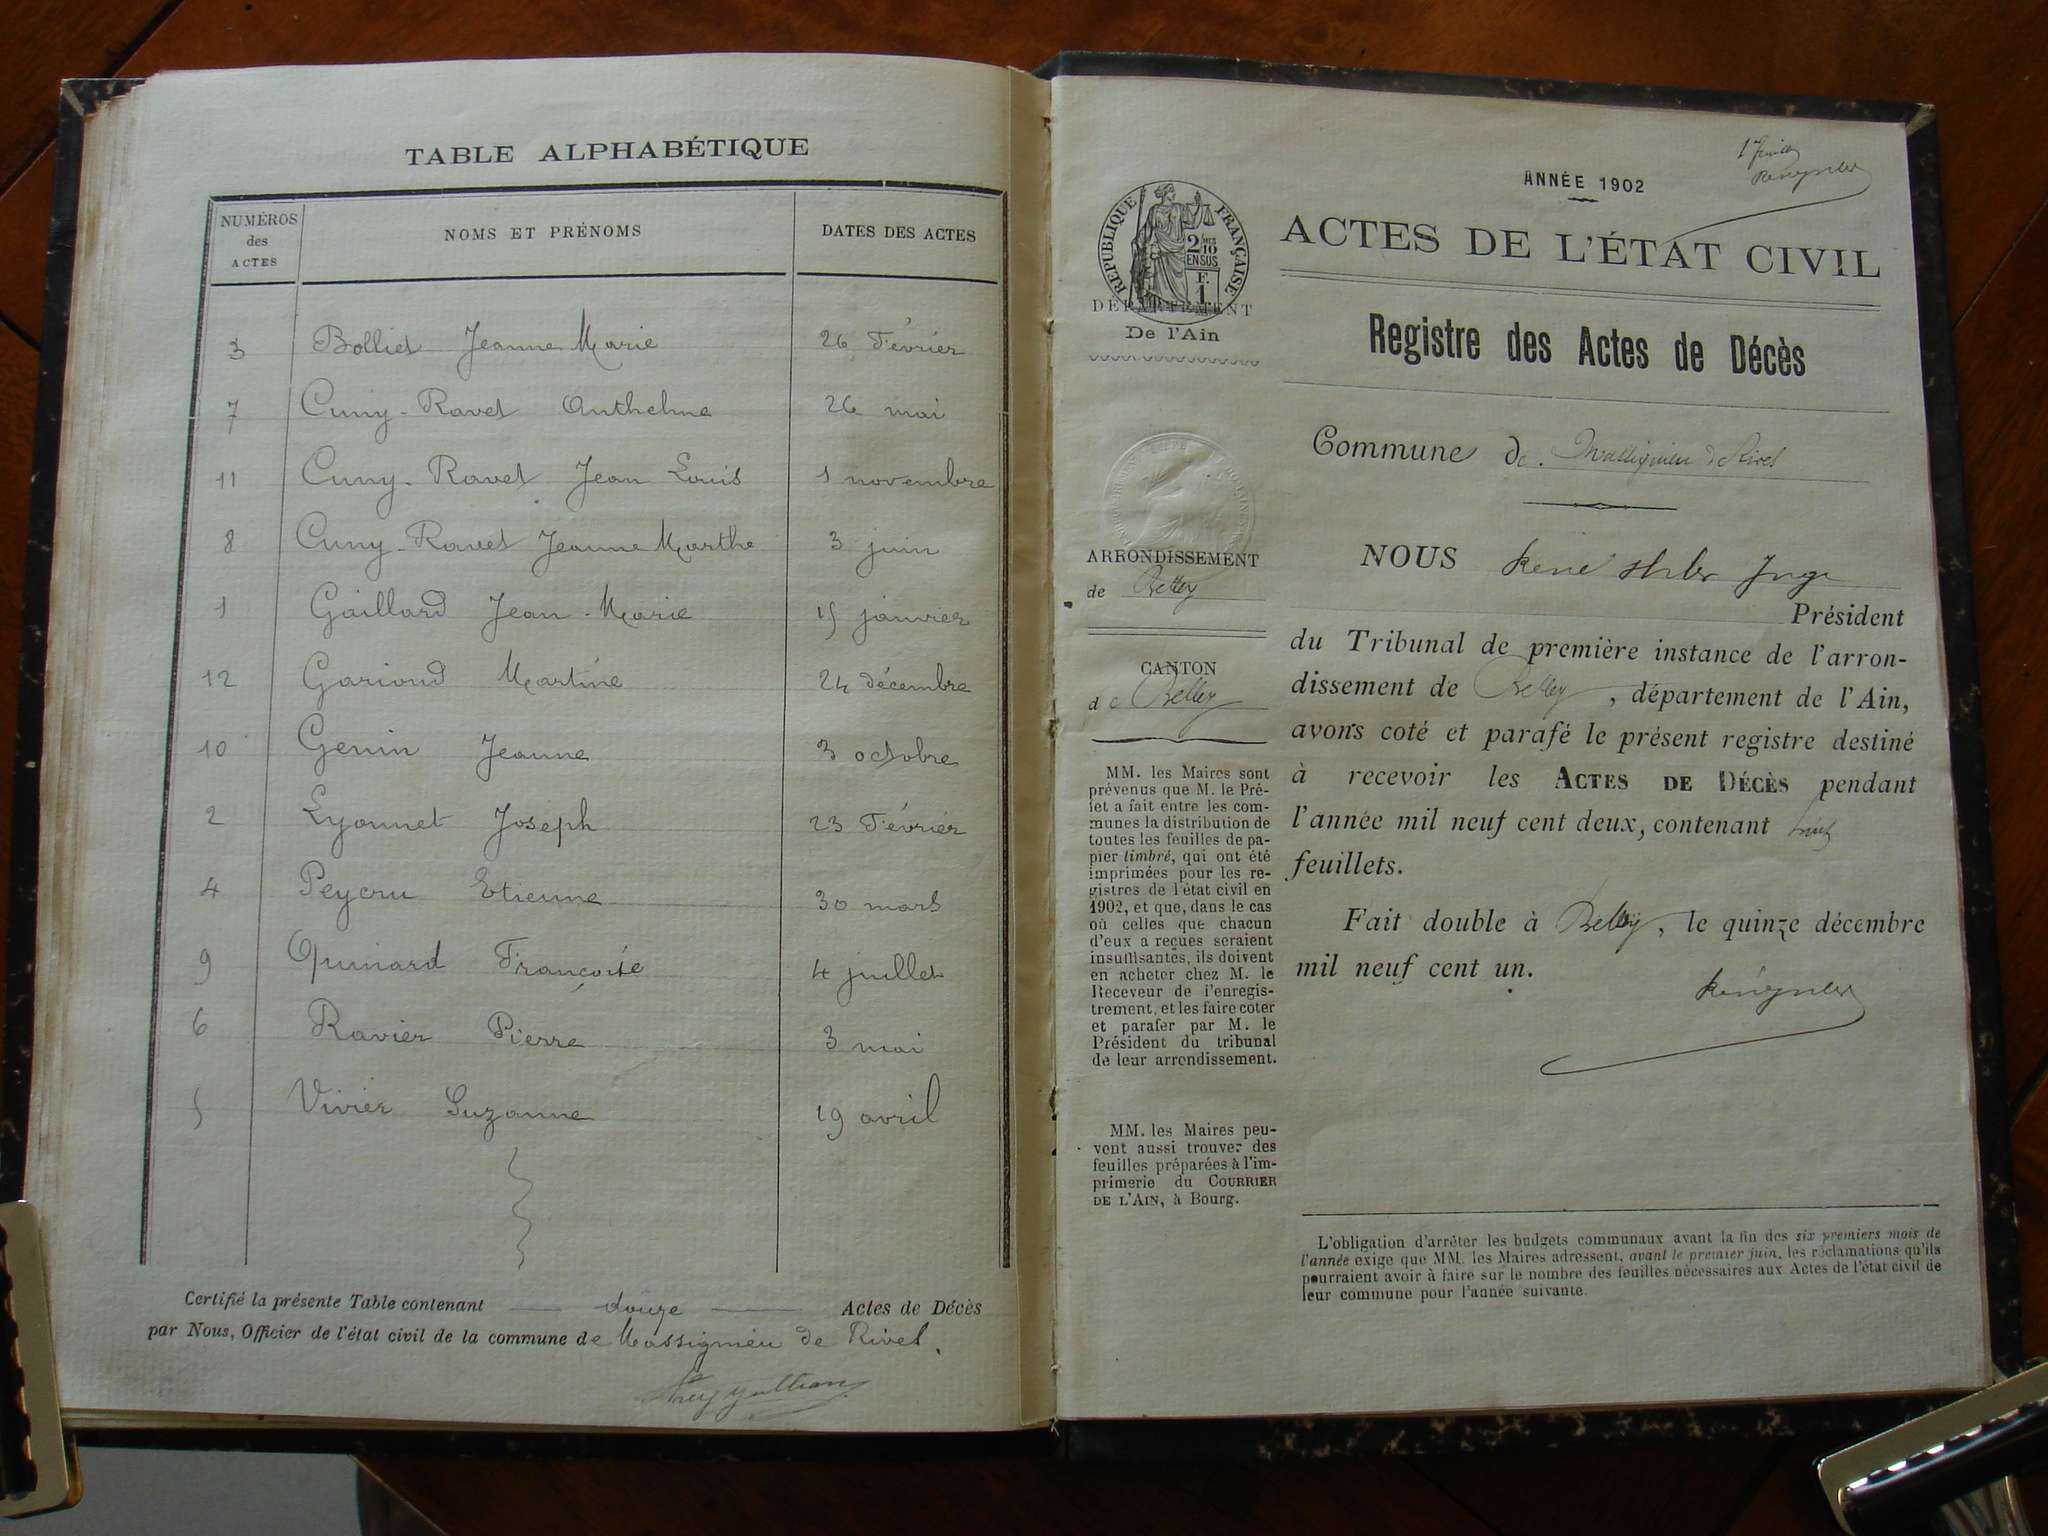 TABLE ALPHABÉTIQUE
NUMÉROS des ACTES
NOMS ET PRÉNOMS
DATES DES ACTES
3 Bolliet Jeanne Marie 26 Février
7 Cuny-Ravet Anthelme 26 mai
11 Cuny-Ravet Jean Louis 1 novembre
8 Cuny-Ravet Jeanne Marthe 3 juin
1 Gaillard Jean-Marie 15 janvier
12 Gariond Martine 24 décembre
10 Genin Jeanne 3 octobre
2 Lyonnet Joseph 23 Février
4 Peycru Etienne 30 mars
9 Quinard Françoise 4 juillet
6 Ravier Pierre 3 mai
5 Vivier Suzanne 19 avril
Certifié la présente Table contenant douze Actes de Décès
par Nous, Officier de l'état civil de la commune de Massignieu de Rives.
ANNÉE 1902
ACTES DE L'ÉTAT CIVIL
RÉPUBLIQUE FRANÇAISE
2 MES
10
EN SUS
F.
1
DÉPARTEMENT
De l'Ain
Registre des Actes de Décès
Commune de Massignieu de Rives
ARRONDISSEMENT
de Belley
CANTON
de Belley
MM. les Maires sont
prévenus que M. le Pré-
fet a fait entre les com-
munes la distribution de
toutes les feuilles de pa-
pier timbré, qui ont été
imprimées pour les re-
gistres de l'état civil en
1902, et que, dans le cas
où celles que chacun
d'eux a reçues seraient
insuffisantes, ils doivent
en acheter chez M. le
Receveur de l'enregis-
trement, et les faire coter
et parafer par M. le
Président du tribunal
de leur arrondissement.
MM. les Maires peu-
vent aussi trouver des
feuilles préparées à l'im-
primerie du COURRIER
DE L'AIN, à Bourg.
NOUS René
Président
du Tribunal de première instance de l'arron-
dissement de Belley, département de l'Ain,
avons coté et parafé le présent registre destiné
à recevoir les ACTES DE DÉCÈS pendant
l'année mil neuf cent deux, contenant huit
feuillets.
Fait double à Belley, le quinze décembre
mil neuf cent un.
L'obligation d'arrêter les budgets communaux avant la fin des six premiers mois de
l'année exige que MM. les Maires adressent, avant le premier juin, les réclamations qu'ils
pourraient avoir à faire sur le nombre des feuilles nécessaires aux Actes de l'état civil de
leur commune pour l'année suivante.